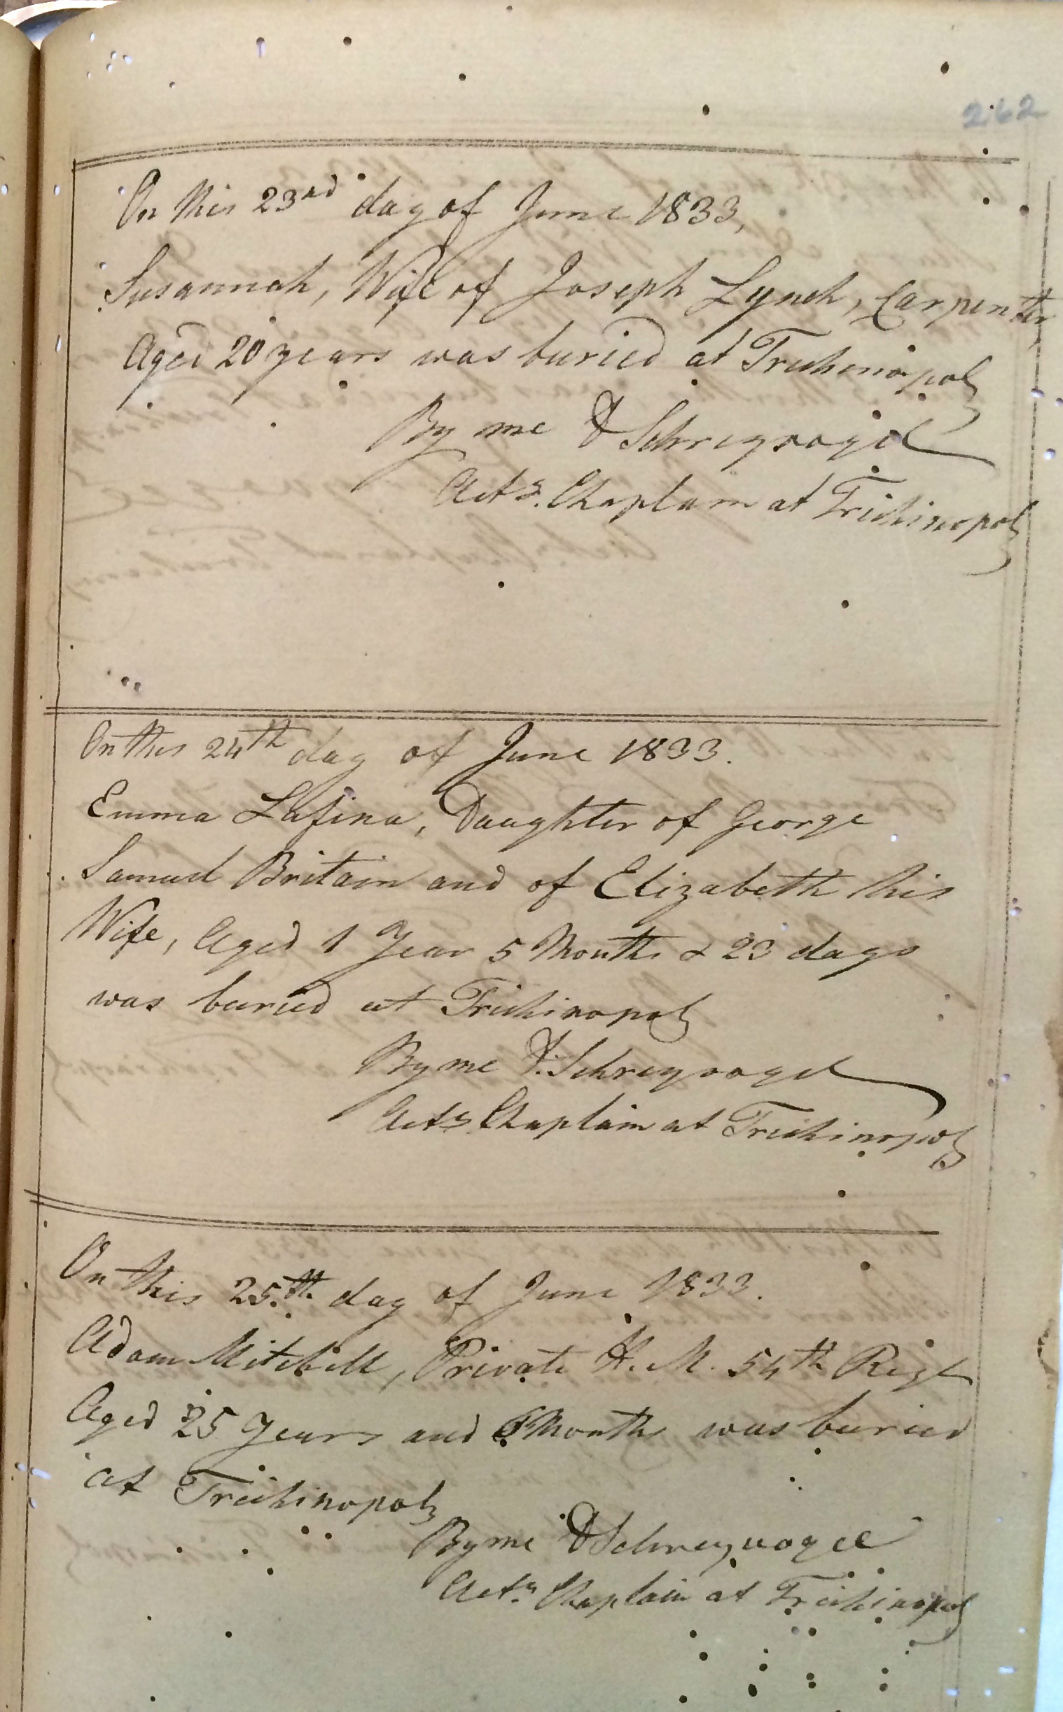 262
On this 23rd day of June 1833,
Susannah, Wife of Joseph Lynch, Carpenter,
Aged 20 years was buried at Trichinopoly
By me D Schreyvogel
Actg. Chaplain at Trichinopoly
On this 24th day of June 1833.
Emma Lafina, Daughter of George
Samuel Britain and of Elizabeth his
Wife, Aged 1 Year 5 Months & 23 days
was buried at Trichinopoly
By me D. Schreyvogel
Actg Chaplain at Trichinopoly
On this 25th day of June 1833.
Adam Mitchell, Private H. M. 54th Regt
Aged 25 Years and Months was buried
at Trichinopoly
By me D Schreyvogel
Actg. Chaplain at Trichinopoly